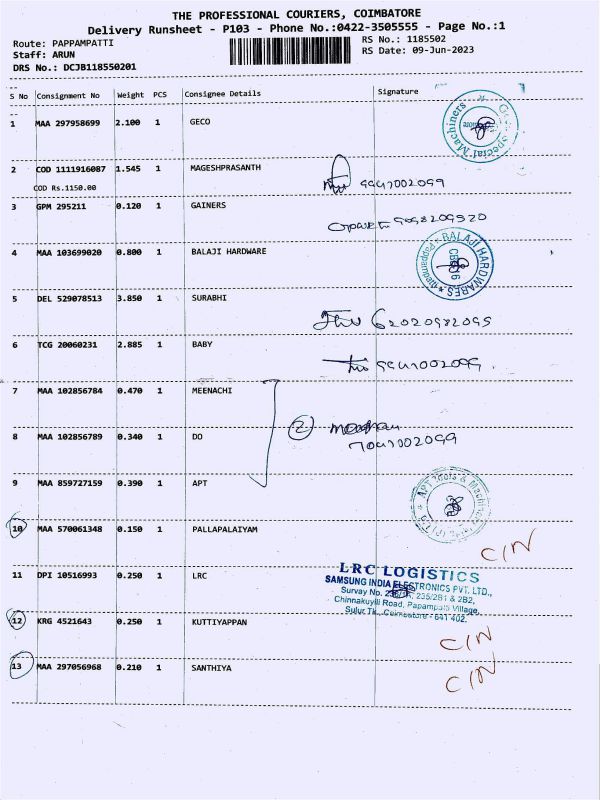 THE PROFESSIONAL COURIERS, COIMBATORE
Delivery Runsheet - P103 - Phone No.:0422-3505555 - Page No.:1
Route: PAPPAMPATTI
RS No.: 1185502
Staff: ARUN
RS Date: 09-Jun-2023
DRS No.: DCJB118550201
S No Consignment No Weight PCS Consignee Details Signature
1 MAA 297958699 2.100 1 GECO
Special Machiners
2 COD 1111916087 1.545 1 MAGESHPRASANTH
COD Rs.1150.00
3 GPM 295211 0.120 1 GAINERS
4 MAA 103699020 0.800 1 BALAJI HARDWARE
BALAJI HARDWARES
5 DEL 529078513 3.850 1 SURABHI
6 TCG 20060231 2.885 1 BABY
7 MAA 102856784 0.470 1 MEENACHI
2
8 MAA 102856789 0.340 1 DO
9 MAA 859727159 0.390 1 APT
APT Tools &
10 MAA 570061348 0.150 1 PALLAPALAIYAM C/N
11 DPI 10516993 0.250 1 LRC
LRC LOGISTICS
SAMSUNG INDIA ELECTRONICS PVT. LTD.,
Survay No. 235/2B1 & 2B2,
Chinnakuyili Road, Papampatti Village,
Sulur Tk., Coimbatore - 641 402.
12 KRG 4521643 0.250 1 KUTTIYAPPAN C/N
13 MAA 297056968 0.210 1 SANTHIYA C/N